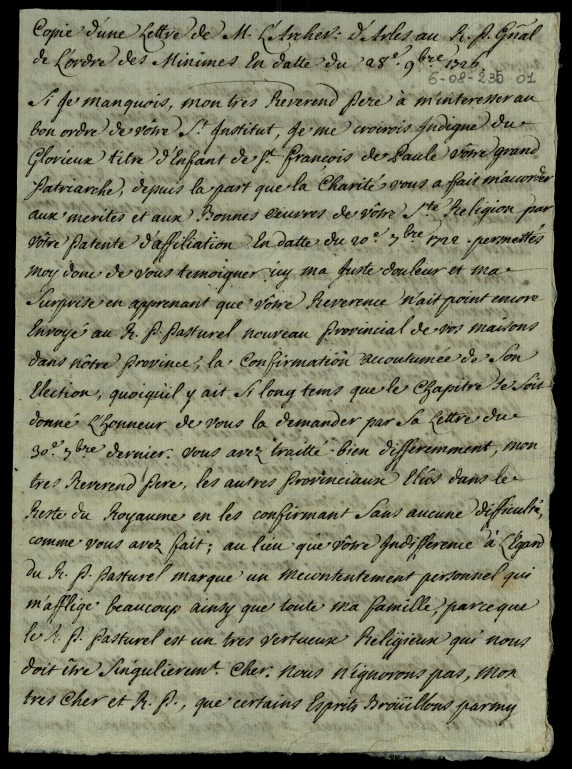 Copie d'une Lettre de M. L'Archev. d'Arles au R. P. Gñal
de L'ordre des Minimes En datte du 28e. 9bre. 1726.
6-08-235 01
Si Je manquois, mon tres Reverend Pere à m'interesser au
bon ordre de vôtre St. Institut, Je me croirois Indigne du
Glorieux titre d'Enfant de St. François de Paule vôtre grand
Patriarche, depuis la part que la Charité vous a fait m'accorder
aux merites et aux Bonnes oeuvres de vôtre Ste. Religion par
vôtre Patente d'affiliation En datte du 20e. 7bre 1722. permettés
moy donc de vous temoigner icy ma Juste douleur et ma
Surprise en apprenant que vôtre Reverence n'ait point encore
Envoyé au R. P. Pasturel nouveau Provincial de vos maisons
dans nôtre province, la Confirmation accoutumée de Son
Election, quoiqu'il y ait Si long tems que le Chapitre Se Soit
donné L'honneur de vous la demander par Sa Lettre du
30e. 7bre dernier. vous avez traitté bien differemment, mon
tres Reverend Pere, les autres Provinciaux Elûs dans le
Reste du Royaume en les confirmant Sans aucune difficulté,
comme vous avez fait; au lieu que vôtre Indifference à L'Egard
du R. P. Pasturel marque un mecontentement personnel qui
m'afflige beaucoup ainsy que toute ma famille, parceque
le R. P. Pasturel est un tres vertueux Religieux qui nous
doit être Singulieremt. Cher. Nous n'ignorons pas, Mon
tres Cher et R. P., que certains Esprits Broüillons parmy